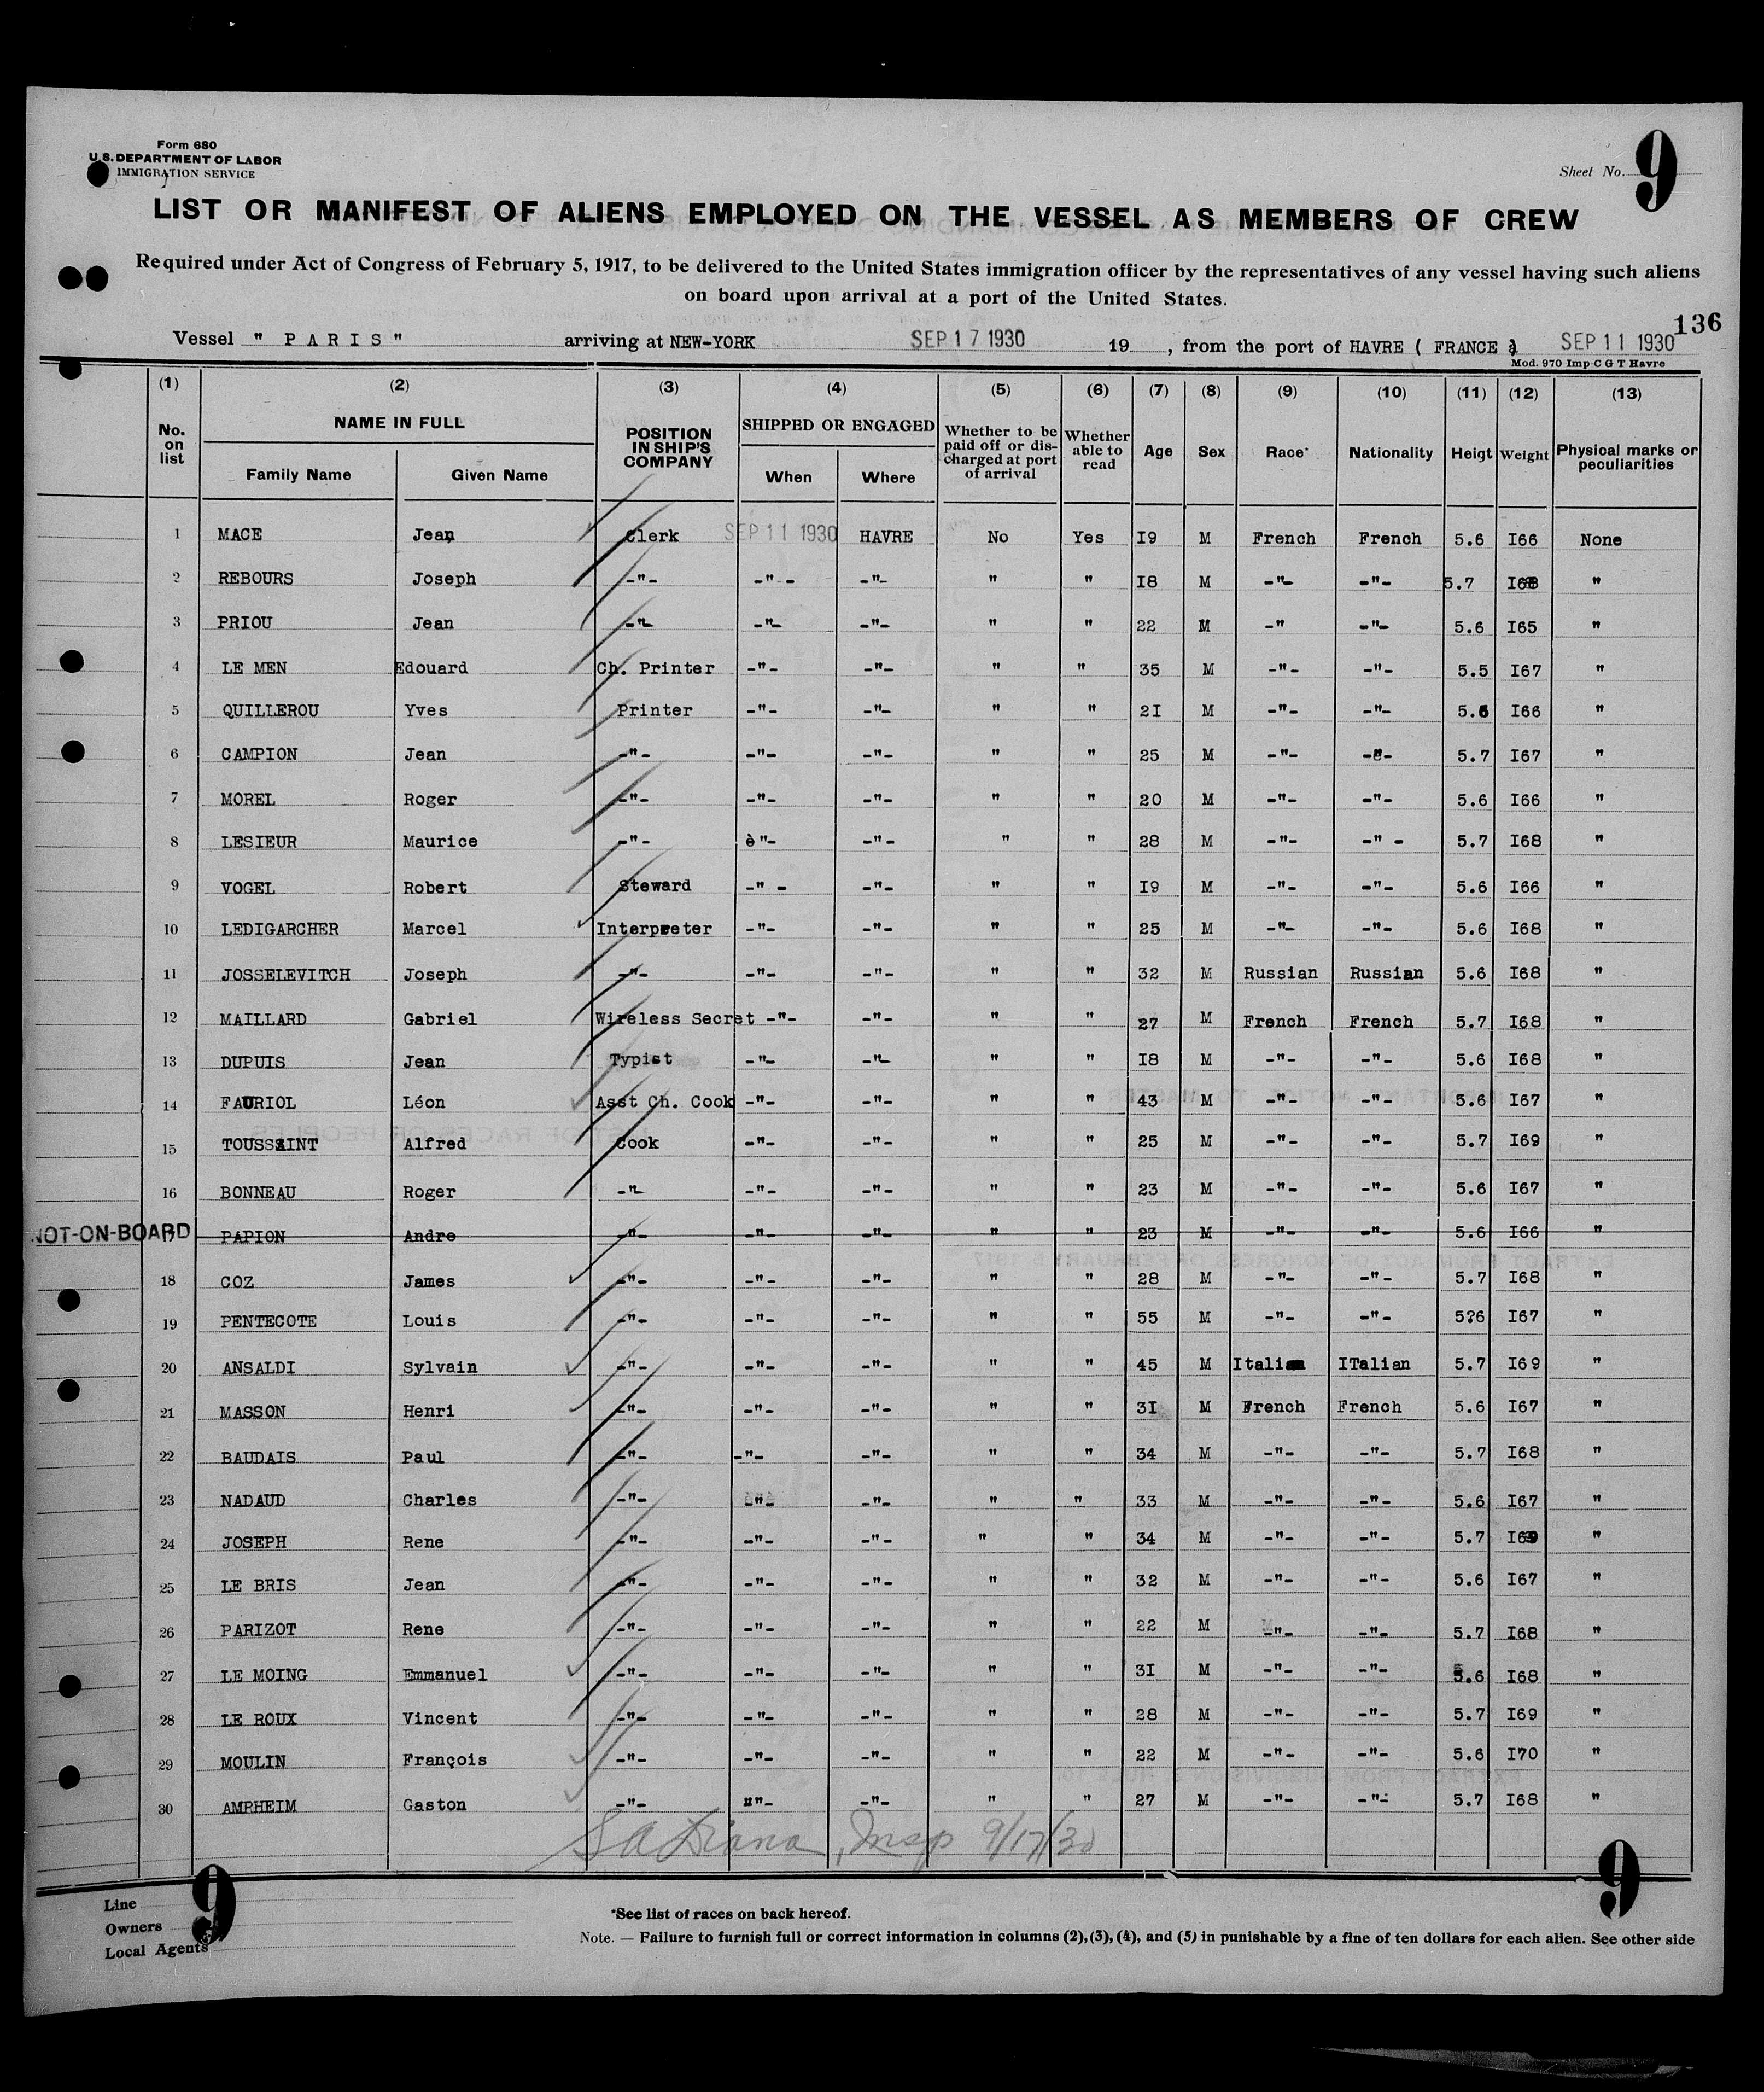 Form 680
U.S. DEPARTMENT OF LABOR
IMMIGRATION SERVICE
Sheet No. 9
LIST OR MANIFEST OF ALIENS EMPLOYED ON THE VESSEL AS MEMBERS OF CREW
Required under Act of Congress of February 5, 1917, to be delivered to the United States immigration officer by the representatives of any vessel having such aliens
on board upon arrival at a port of the United States.
136
Vessel " P A R I S " arriving at NEW-YORK SEP 17 1930 19 , from the port of HAVRE ( FRANCE ) SEP 11 1930
Mod. 970 Imp C G T Havre
(1) (2) (3) (4) (5) (6) (7) (8) (9) (10) (11) (12) (13)
No. on list NAME IN FULL Family Name Given Name POSITION IN SHIP'S COMPANY SHIPPED OR ENGAGED When Where Whether to be paid off or discharged at port of arrival Whether able to read Age Sex Race* Nationality Heigt Weight Physical marks or peculiarities
1 MACE Jean Clerk SEP 11 1930 HAVRE No Yes I9 M French French 5.6 I66 None
2 REBOURS Joseph -"- -" - -"- " " I8 M -"- -"- 5.7 I68 "
3 PRIOU Jean -"- -"- -"- " " 22 M -" -"- 5.6 I65 "
4 LE MEN Edouard Ch. Printer -"- -"- " " 35 M -"- -"- 5.5 I67 "
5 QUILLEROU Yves Printer -"- -"- " " 2I M -"- -"- 5.6 I66 "
6 CAMPION Jean -"- -"- -"- " " 25 M -"- -"- 5.7 I67 "
7 MOREL Roger -"- -"- -"- " " 20 M -"- -"- 5.6 I66 "
8 LESIEUR Maurice -"- è"- -"- " " 28 M -"- -" - 5.7 I68 "
9 VOGEL Robert Steward -" - -"- " " I9 M -"- -"- 5.6 I66 "
10 LEDIGARCHER Marcel Interpreter -"- -"- " " 25 M -"- -"- 5.6 I68 "
11 JOSSELEVITCH Joseph -"- -"- -"- " " 32 M Russian Russian 5.6 I68 "
12 MAILLARD Gabriel Wireless Secret -"- -"- " " 27 M French French 5.7 I68 "
13 DUPUIS Jean Typist -"- -"- " " I8 M -"- -"- 5.6 I68 "
14 FAURIOL Léon Asst Ch. Cook -"- -"- " " 43 M -"- -"- 5.6 I67 "
15 TOUSSAINT Alfred Cook -"- -"- " " 25 M -"- -"- 5.7 I69 "
16 BONNEAU Roger -"- -"- -"- " " 23 M -"- -"- 5.6 I67 "
NOT-ON-BOARD PAPION Andre -"- -"- -"- " " 23 M -"- -"- 5.6 I66 "
18 COZ James -"- -"- -"- " " 28 M -"- -"- 5.7 I68 "
19 PENTECOTE Louis -"- -"- -"- " " 55 M -"- -"- 5?6 I67 "
20 ANSALDI Sylvain -"- -"- -"- " " 45 M Italian ITalian 5.7 I69 "
21 MASSON Henri -"- -"- -"- " " 3I M French French 5.6 I67 "
22 BAUDAIS Paul -"- -"- -"- " " 34 M -"- -"- 5.7 I68 "
23 NADAUD Charles -"- -"- -"- " " 33 M -"- -"- 5.6 I67 "
24 JOSEPH Rene -"- -"- -"- " " 34 M -"- -"- 5.7 I69 "
25 LE BRIS Jean -"- -"- -"- " " 32 M -"- -"- 5.6 I67 "
26 PARIZOT Rene -"- -"- -"- " " 22 M -"- -"- 5.7 I68 "
27 LE MOING Emmanuel -"- -"- -"- " " 3I M -"- -"- 5.6 I68 "
28 LE ROUX Vincent -"- -"- -"- " " 28 M -"- -"- 5.7 I69 "
29 MOULIN François -"- -"- -"- " " 22 M -"- -"- 5.6 I70 "
30 AMPHEIM Gaston -"- "- -"- " " 27 M -"- -"- 5.7 I68 "
Insp 9/17/30
9 9
Line
Owners
Local Agents
*See list of races on back hereof.
Note. — Failure to furnish full or correct information in columns (2), (3), (4), and (5) in punishable by a fine of ten dollars for each alien. See other side